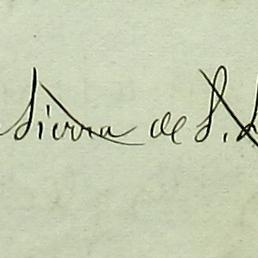 Sierra de S.